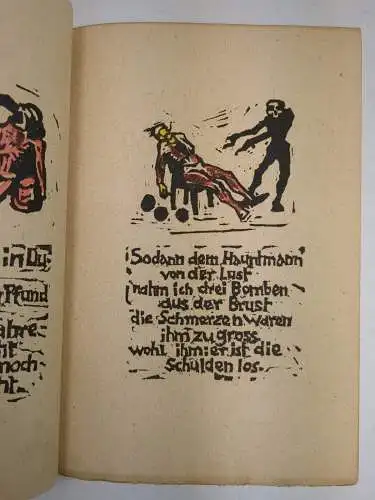 in Dy-
Pfund
abre-
it
moch-
ht.
Sodann dem Hauptmann
von der Lust
nahm ich drei Bomben
aus der Brust
die Schmerzen waren
ihm zu gross
wohl ihm er ist die
Schulden los.